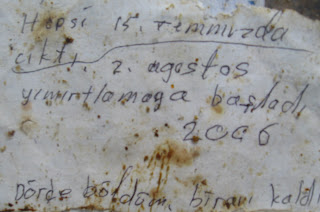 Hepsi 15. temmuzda
çıktı, 2. agostos
yumurtlamaga başladı
2006
Dörde böldüm, birau kaldı